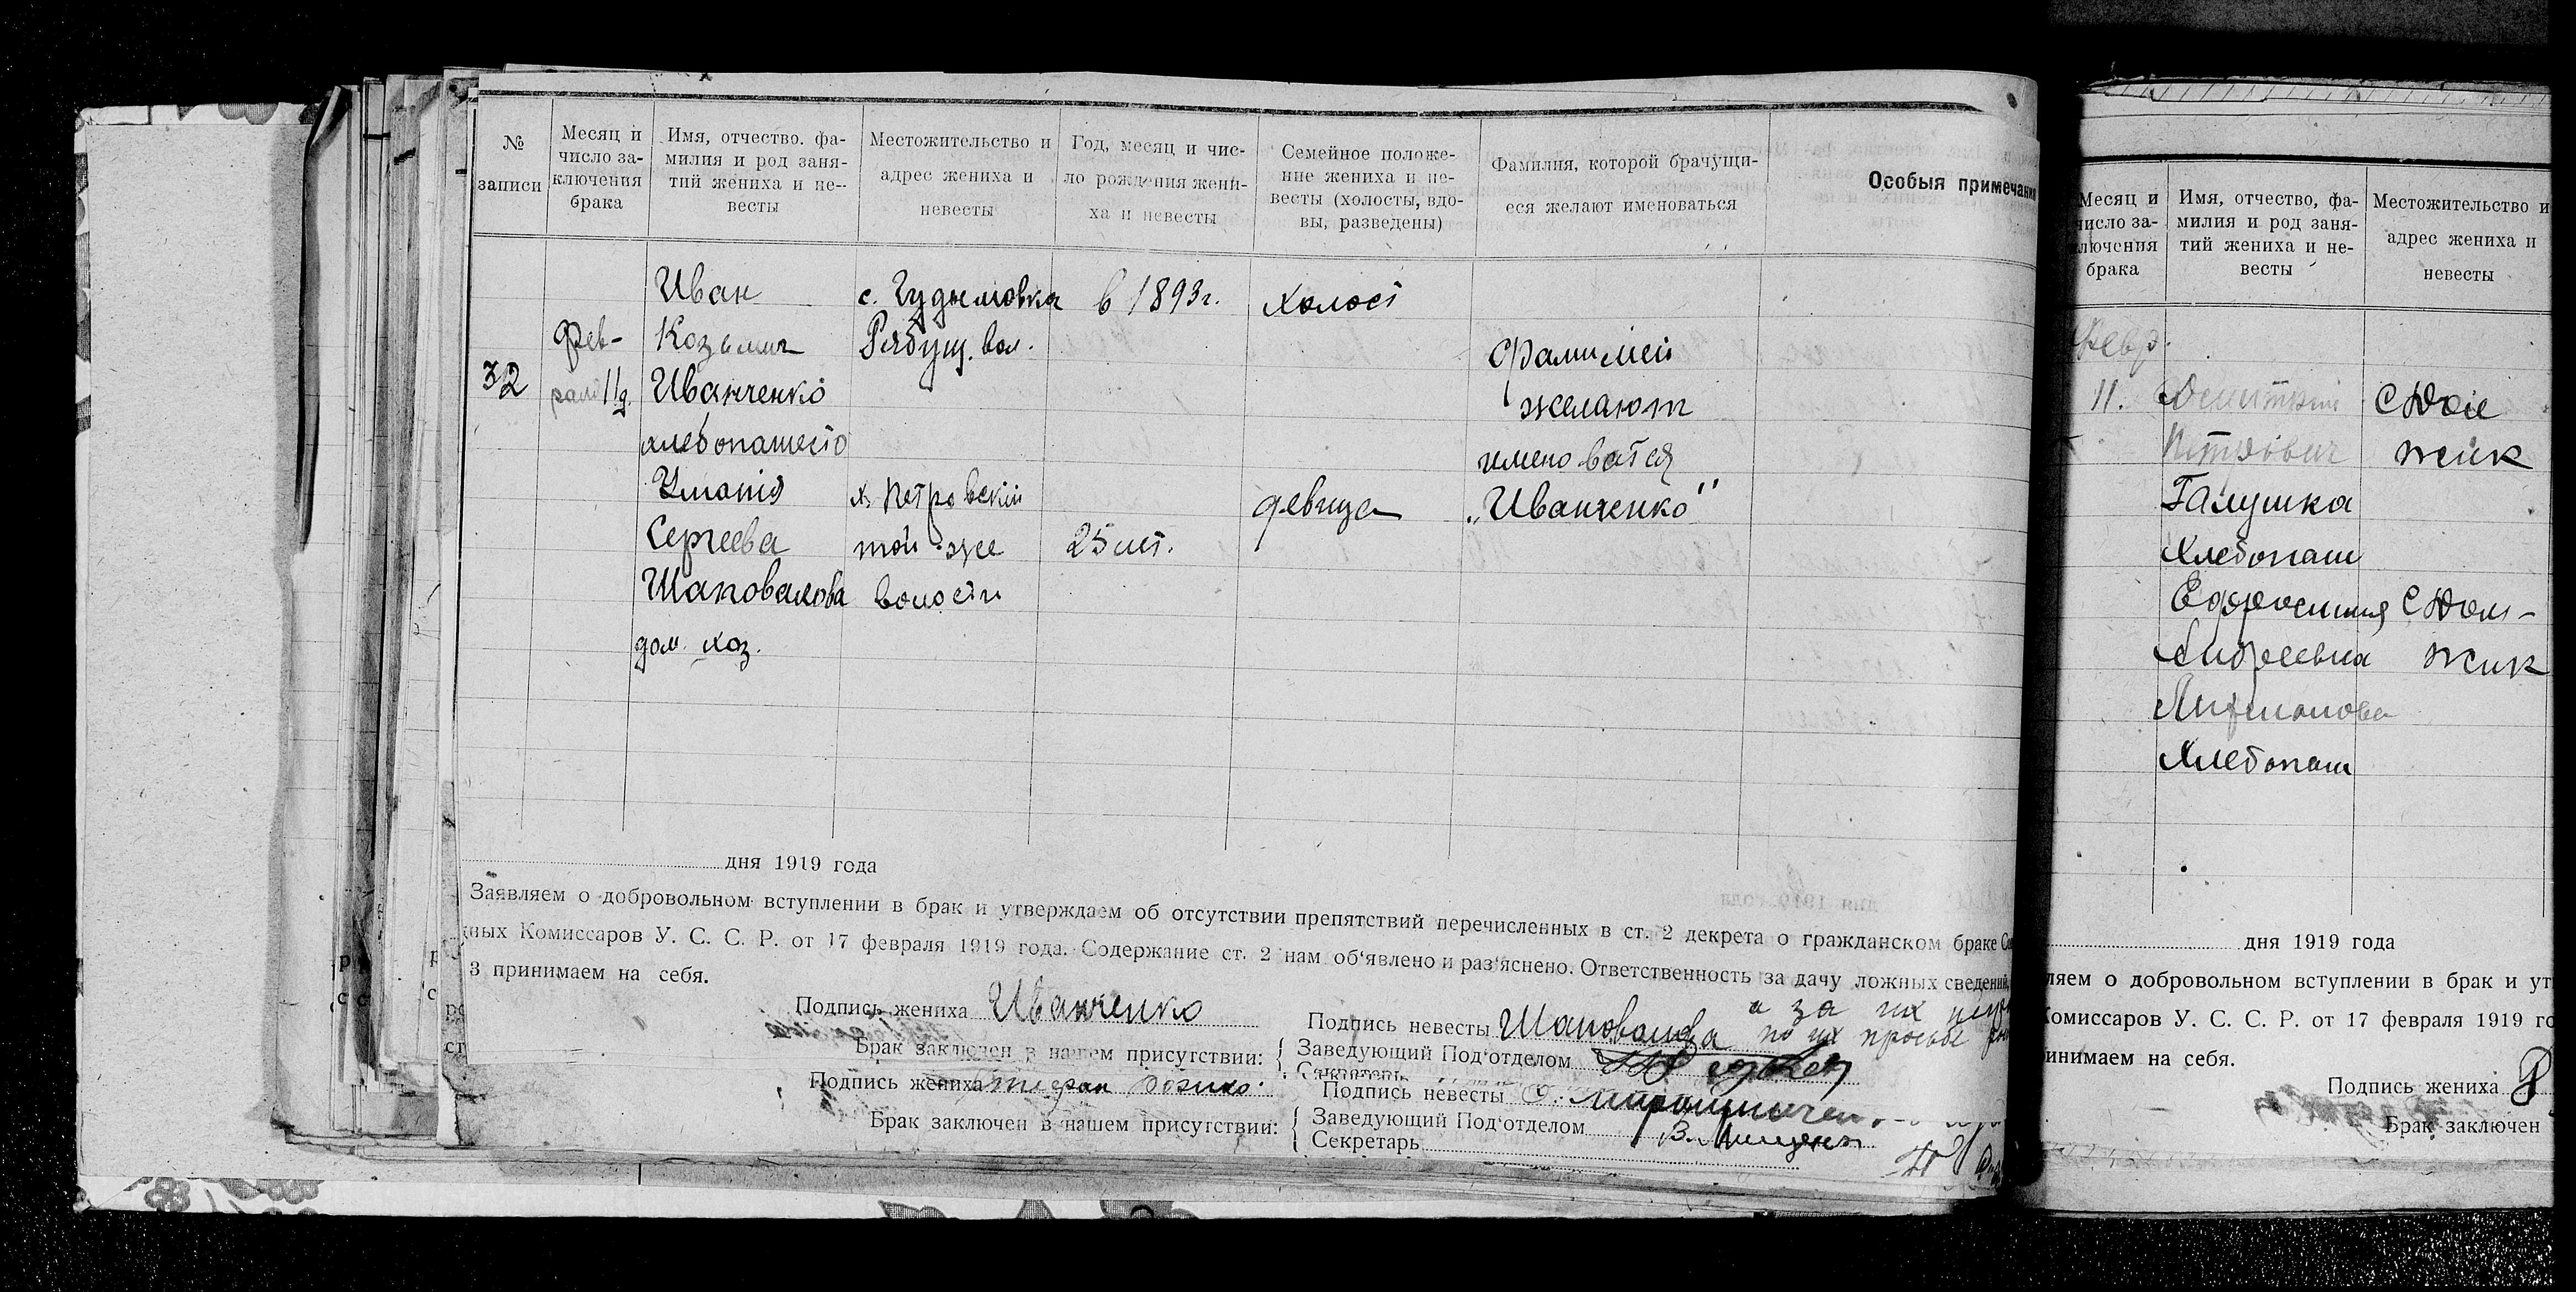 № записи
Месяц и число заключения брака
Имя, отчество. фа-
милия и род заня-
тий жениха и не-
весты
Местожительство и
адрес жениха и
невесты
Год, месяц и чис-
ло рождения жени-
ха и невесты
Семейное положе-
ние жениха и не-
весты (холосты, вдо-
вы, разведены)
Фамилия, которой брачущи-
еся желают именоваться
Особыя примечания
32
Фев-
раль 11 д.
Иван
Козьмич
Иванченко
хлебопашество
Сергеева
Шаповалова
дом. хоз.
Рябуш. вол.
х. Петровский
той-же
волости
в 1893 г.
25 лет.
холост
девица
Фамилией
желают
именоватся
„Иванченко"
дня 1919 года
Заявляем о добровольном вступлении в брак и утверждаем об отсутствии препятствий перечисленных в ст. 2 декрета о гражданском браке
дных Комиссаров У. С. С. Р. от 17 февраля 1919 года. Содержание ст. 2 нам об'явлено и раз'яснено. Ответственность за дачу ложных сведений,
3 принимаем на себя.
Подпись жениха Иванченко
Подпись невесты Шаповалова
а за их
по их просьбе
Брак заключен в нашем присутствии:
Заведующий Под'отделом
Секретарь
Подпись жениха
Подпись невесты
Брак заключен в нашем присутствии:
Заведующий Под'отделом
Секретарь
Месяц и
число за-
лючения
брака
Имя, отчество, фа-
милия и род заня-
тий жениха и не-
весты
Местожительство и
адрес жениха и
невесты
Февр.
11.
Дмитрий
Петрович
Галушка
Хлебопаш
Ефросиния
Андреевна
Хлебопаш
дня 1919 года
ляем о добровольном вступлении в брак и ут
Комиссаров У. С. С. Р. от 17 февраля 1919 го
ринимаем на себя.
Подпись жениха
Брак заключен